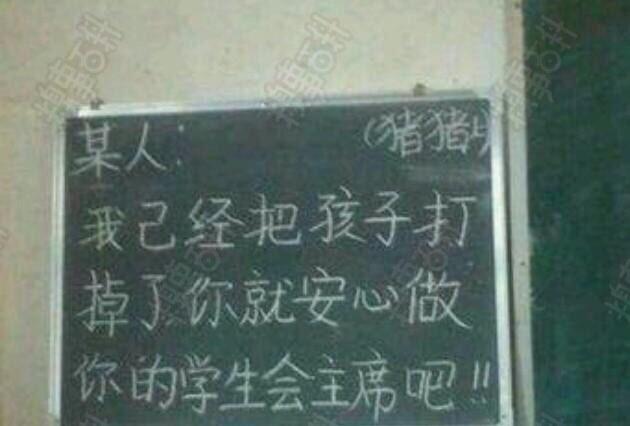 某人: (猪猪
我己经把孩子打
掉了你就安心做
你的学生会主席吧!!